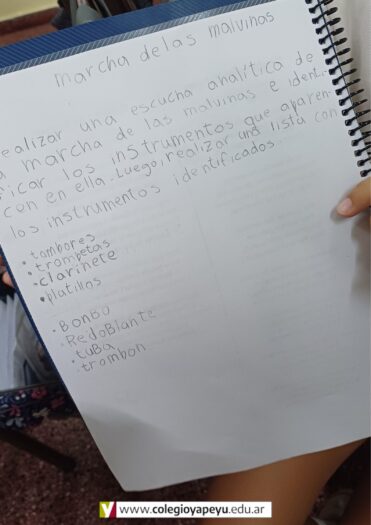 marcha de las malvinas
ealizar una escucha analítica de
a marcha de las malvinas e identi-
icar los instrumentos que aparen-
cen en ella. Luego, realizar una lista con
los instrumentos identificados.
• tambores
• trompetas
• clarinete
• platillos
• BONBO
• RedoBlante
• tuBa
• trombon
www.colegioyapeyu.edu.ar